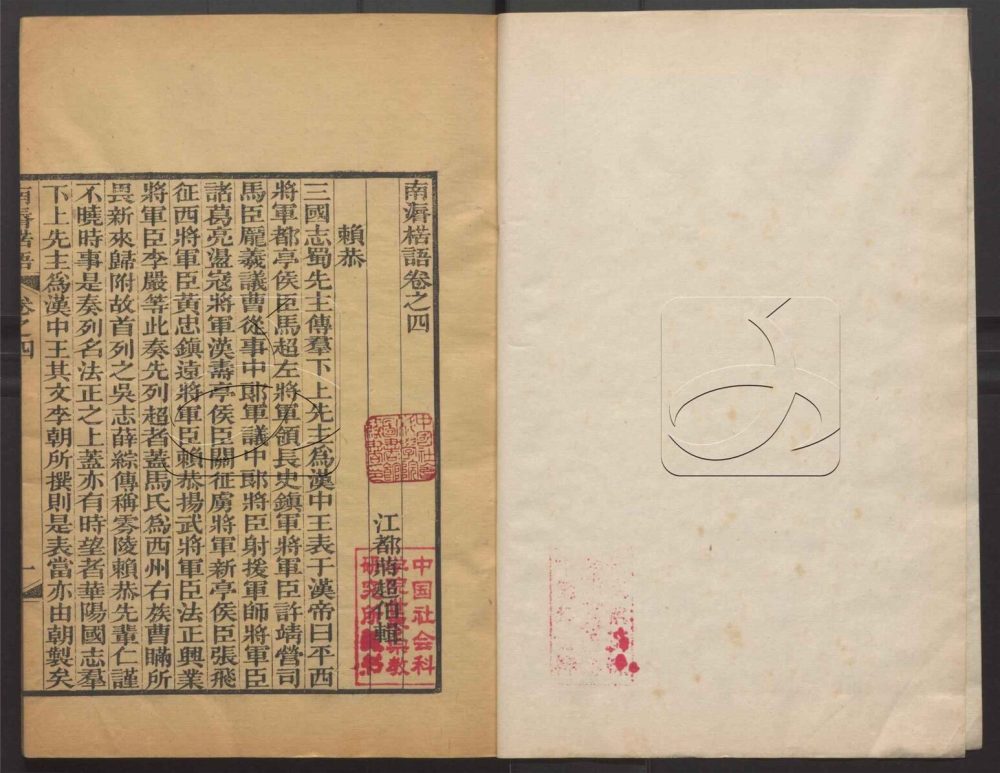 南漘楛語卷之四
江都蔣超伯輯
賴恭
三國志蜀先主傳羣下上先主爲漢中王表于漢帝曰平西
將軍都亭侯臣馬超左將軍領長史鎮軍將軍臣許靖營司
馬臣龐羲議曹從事中郎軍議中郎將臣射援軍師將軍臣
諸葛亮盪寇將軍漢壽亭侯臣關征虜將軍新亭侯臣張飛
征西將軍臣黃忠鎮遠將軍臣賴恭揚武將軍臣法正興業
將軍臣李嚴等此奏先列超者蓋馬氏爲西州右族曹瞞所
畏新來歸附故首列之吳志薛綜傳稱零陵賴恭先輩仁謹
不曉時事是奏列名法正之上蓋亦有時望者華陽國志羣
下上先主爲漢中王其文李朝所撰則是表當亦由朝製矣
南漘楛語
卷之四
一
中国社会科